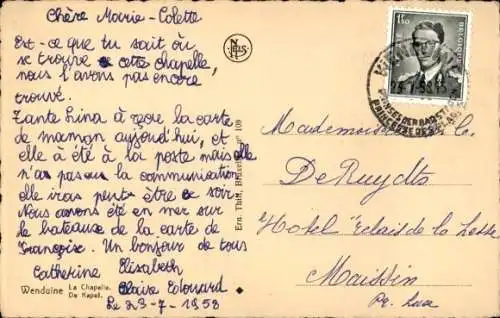 Chère Marie-Colette
Est-ce que tu sait où
se trouve cette chapelle,
nous l'avons pas encore
trouvé.
Tante Lina à reçu la carte
de maman aujourd'hui, et
elle à été à la poste mais elle
n'a pas eu la communication
elle iras peut être ce soir.
Nous avons été en mer sur
le bateaux de la carte de
Françoise. Un bonjour de tous
Catherine Elisabeth
Claire Edouard
Le 23-7-1953
Wenduine La Chapelle.
De Kapel.
NELS
Ern. Thill, Bruxelles N° 109
1F50
BELGIQUE
Mademoiselle
De Ruydts
Hotel "relais de la Lesse
Maissin
Pr. Lux